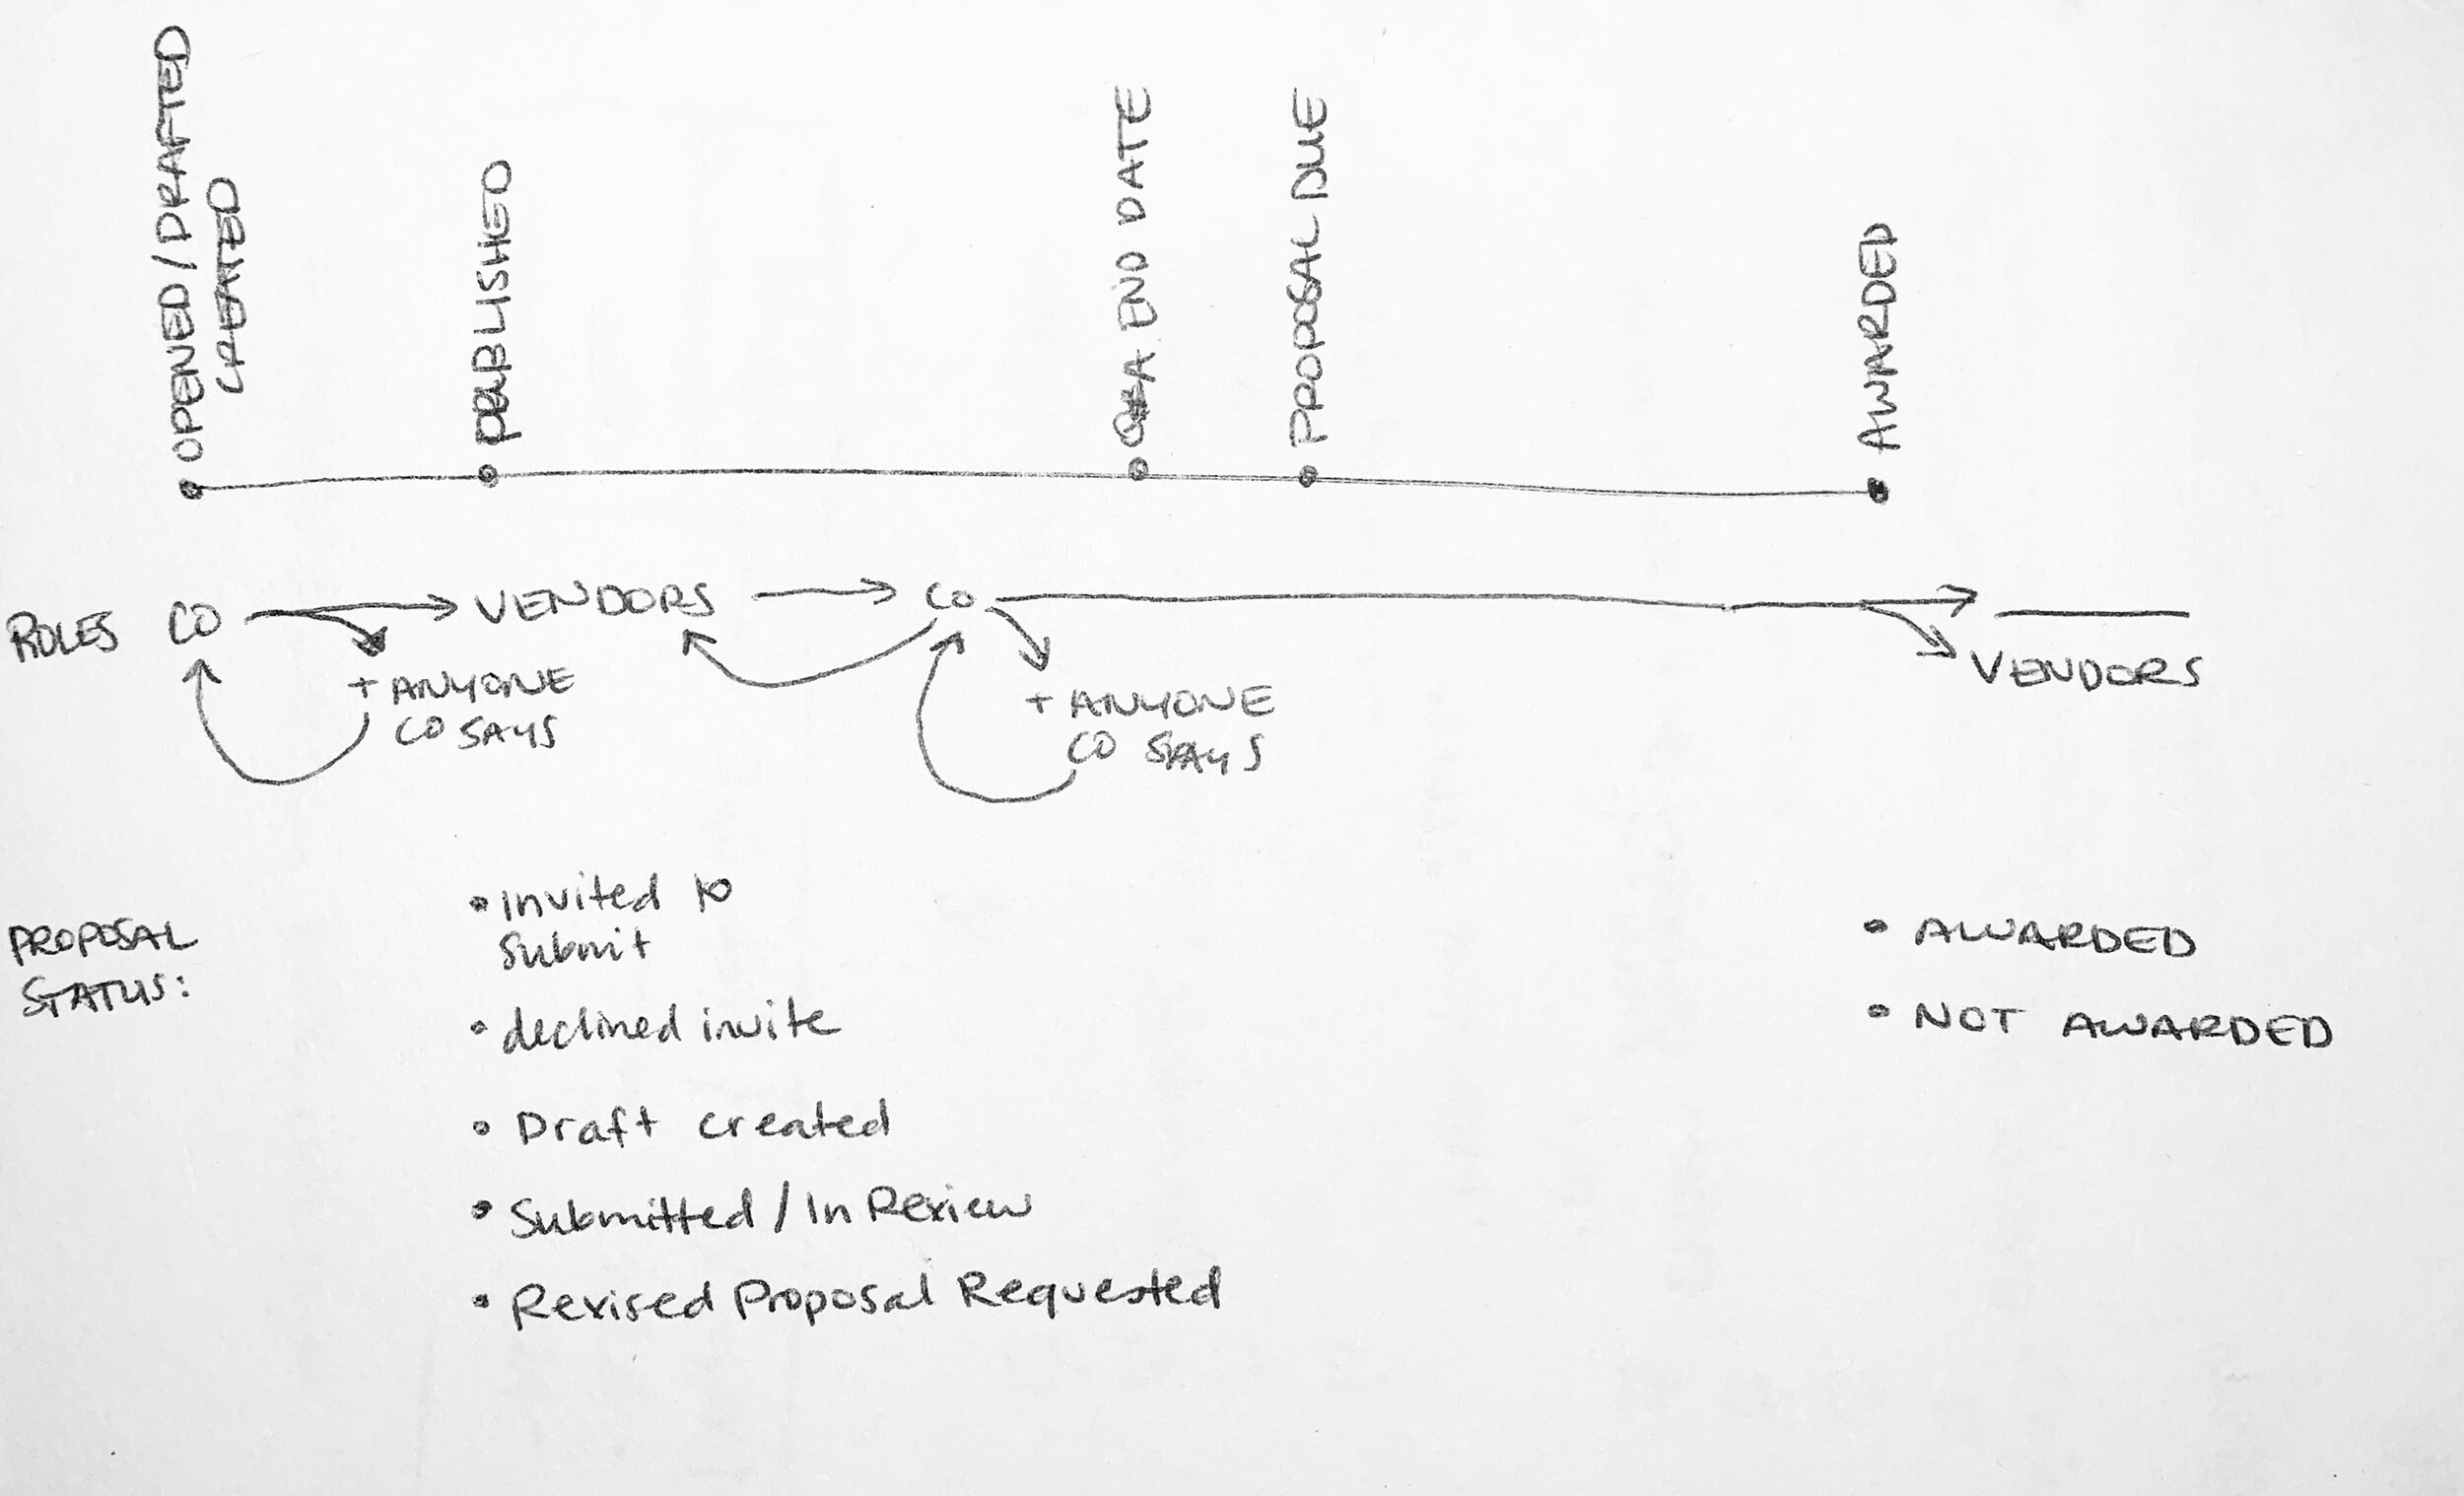 OPENED / DRAFTED
CREATED
PUBLISHED
Q&A END DATE
PROPOSAL DUE
AWARDED
ROLES CO VENDORS CO
+ ANYONE
CO SAYS
+ ANYONE
CO SAYS
VENDORS
PROPOSAL
STATUS:
• Invited to
Submit
• declined invite
• Draft created
• Submitted / In Review
• Revised Proposal Requested
• AWARDED
• NOT AWARDED